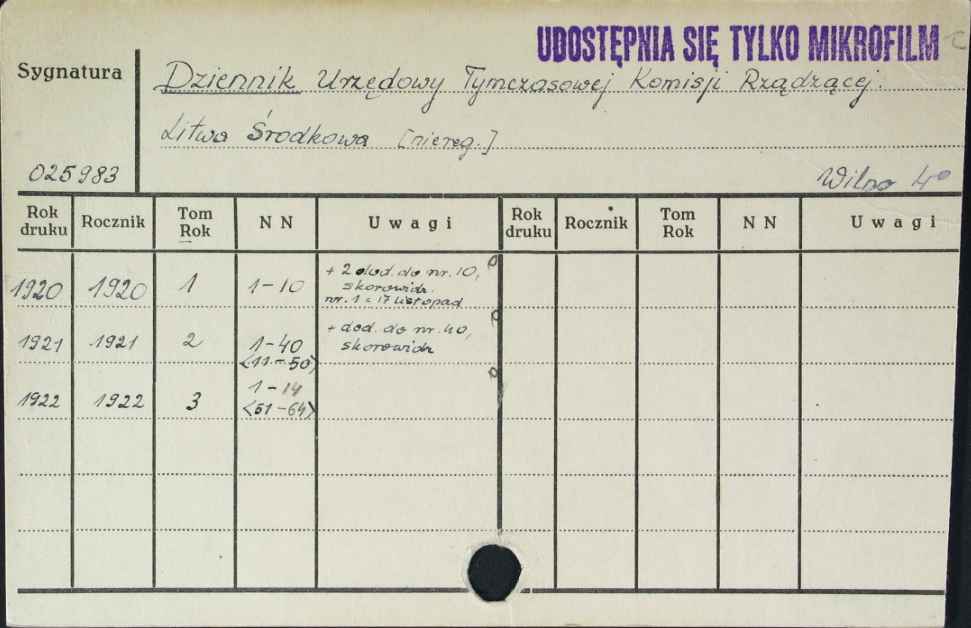 UDOSTĘPNIA SIĘ TYLKO MIKROFILM
Sygnatura
Dziennik Urzędowy Tymczasowej Komisji Rządzącej.
Litwa Środkowa [niereg.]
025983
Wilno 4°
Rok druku Rocznik Tom Rok N N Uwagi Rok druku Rocznik Tom Rok N N Uwagi
1920 1920 1 1-10 + 2 dod. do nr. 10,
skorowidz.
nr. 1 = 17 listopad
1921 1921 2 1-40 + dod. do nr. 40,
<11-50> skorowidz
1922 1922 3 1-14
<51-64>